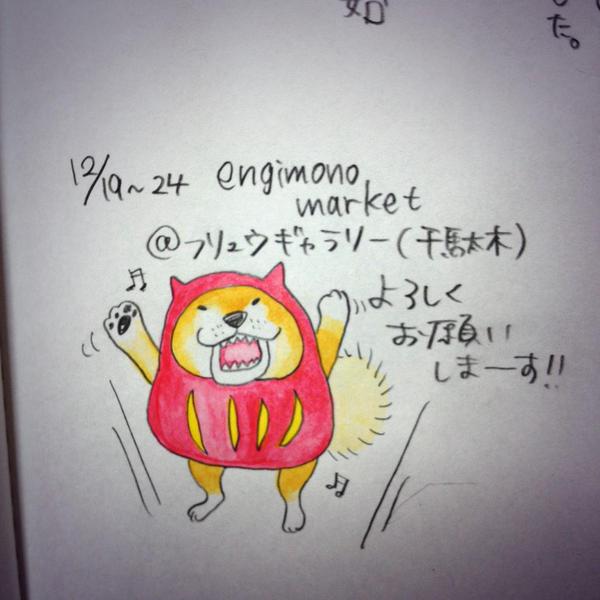 した。
如
12/19~24 engimono
market
@フリュウギャラリー(千駄木)
よろしく
お願い
しまーす!!